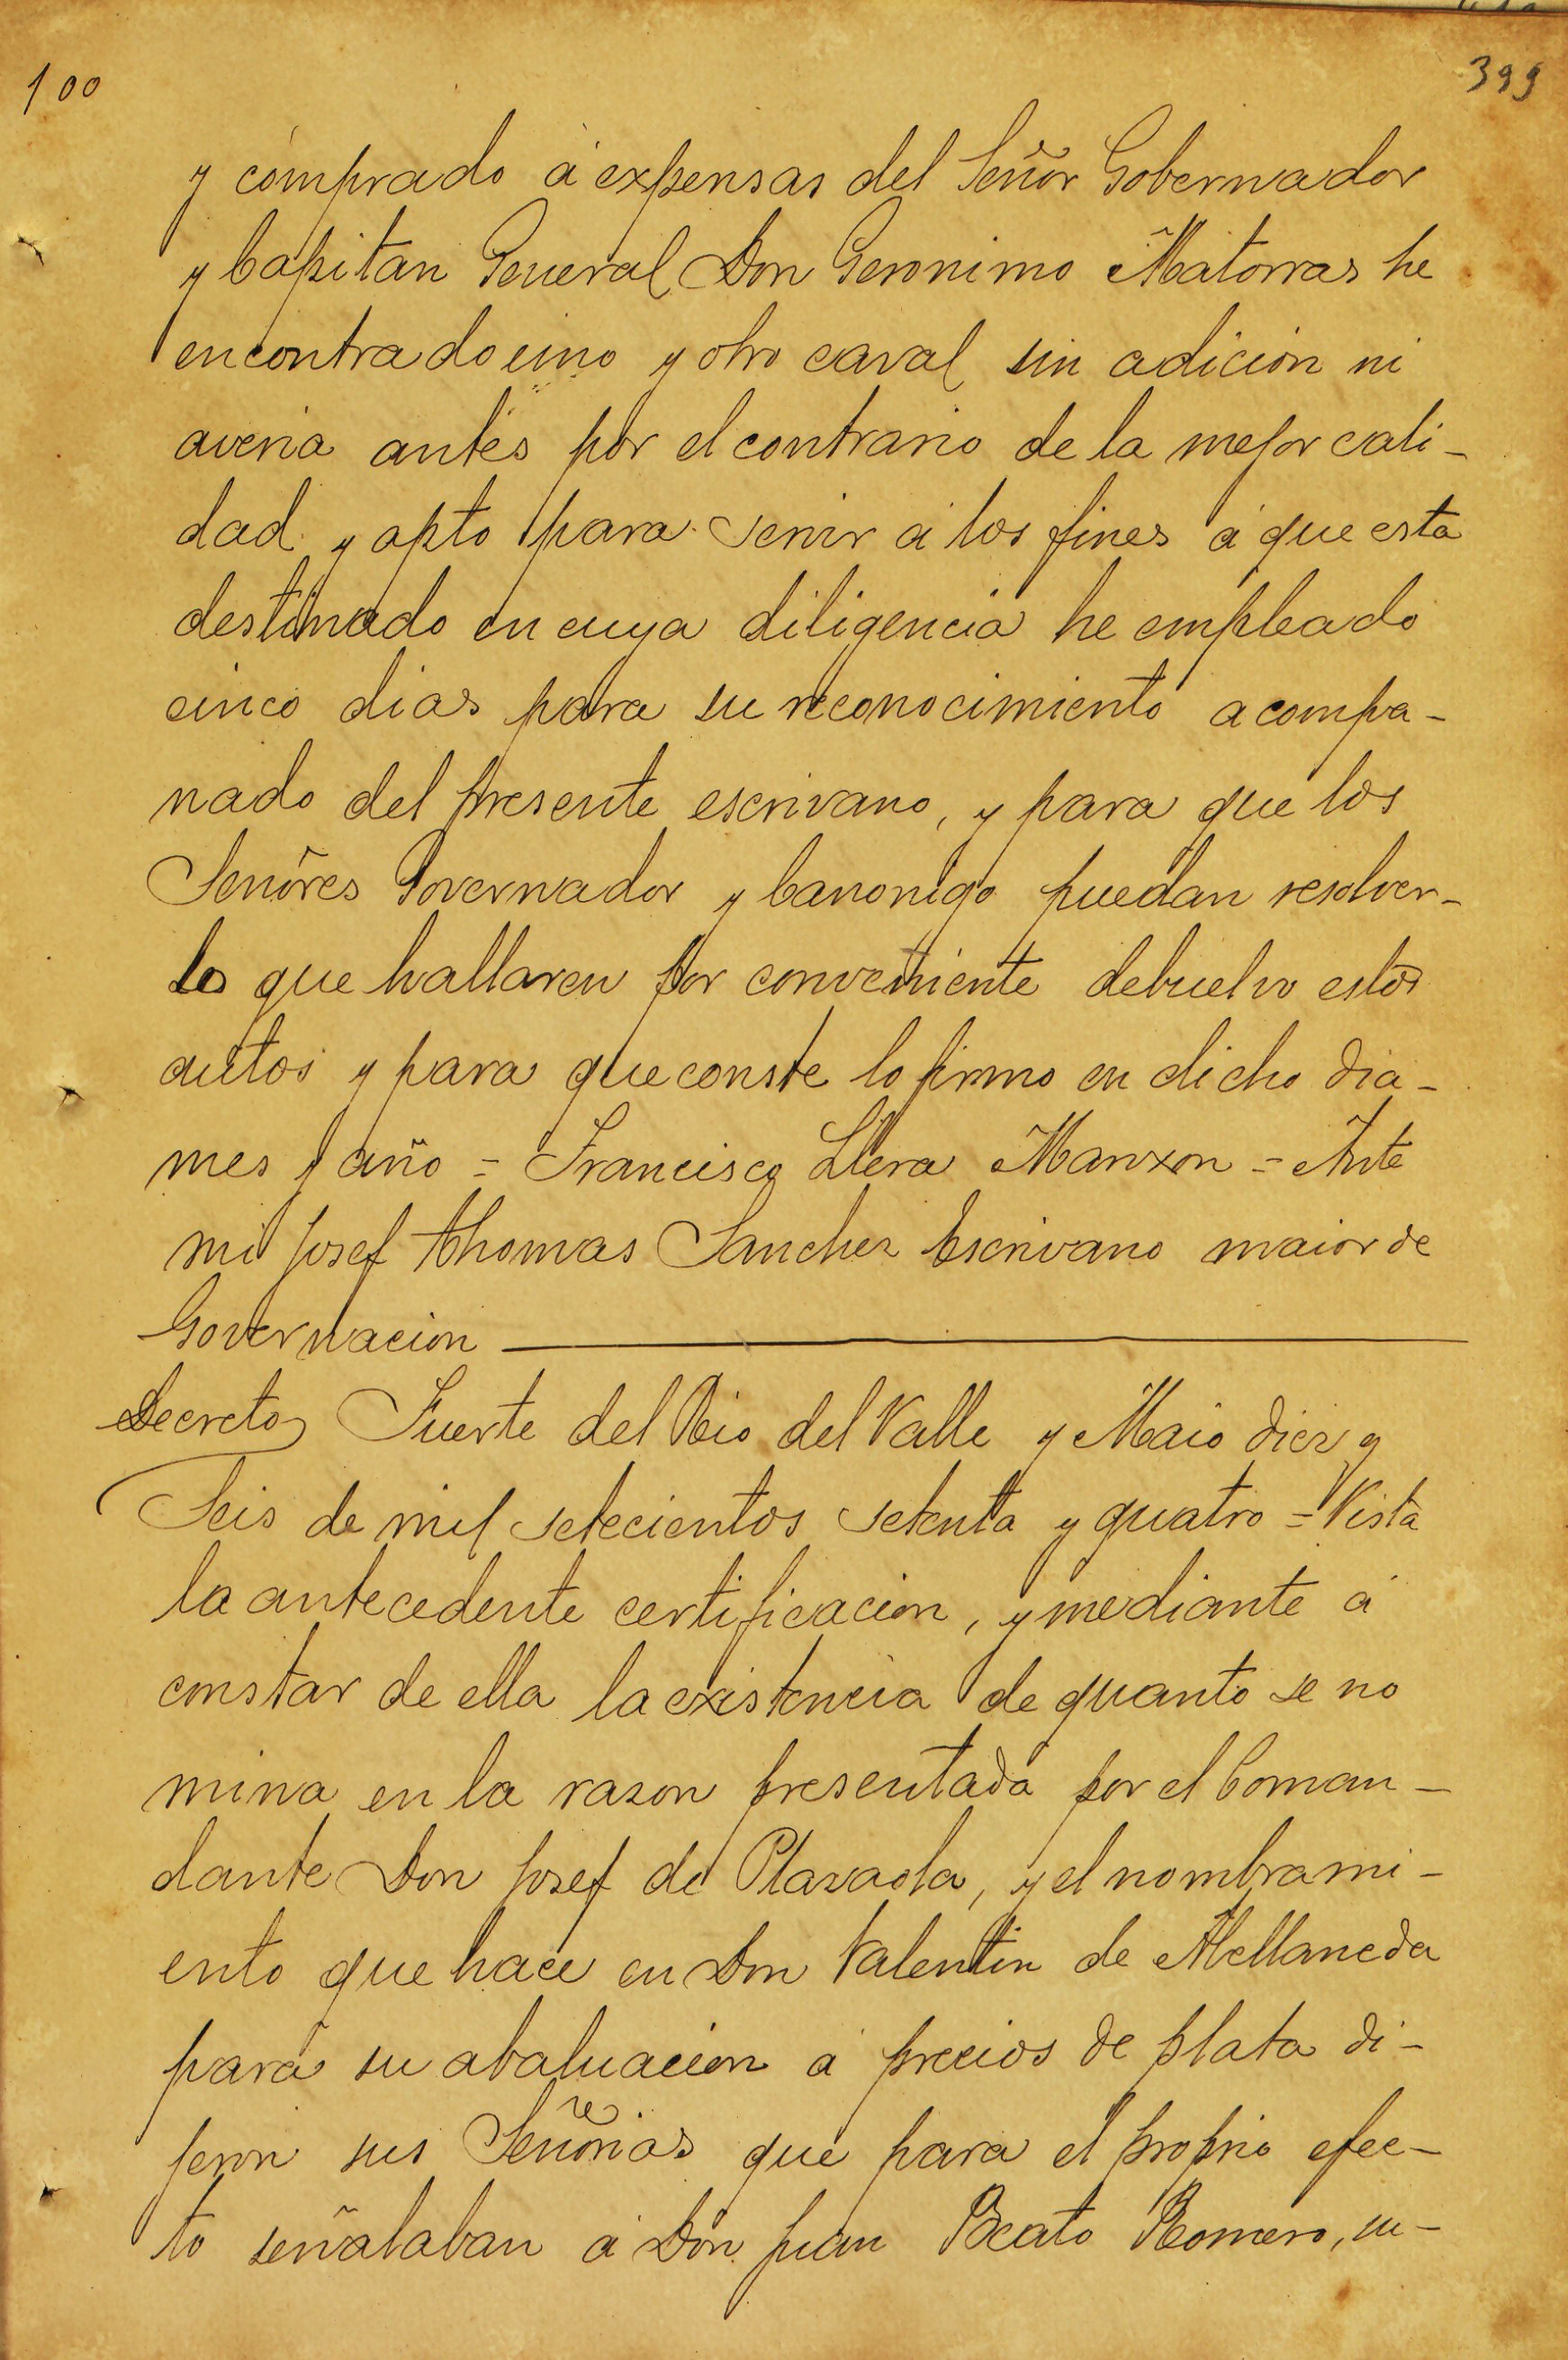 100
399
y comprado á expensas del Señor Gobernador
y Capitan General Don Geronimo Matorras he
encontrado uno y otro caval sin adicion ni
averia antes por el contrario de la mejor cali-
dad y apto para servir á los fines á que esta
destinado en cuya diligencia he empleado
cinco dias para su reconocimiento acompa-
nado del presente escrivano, y para que los
Señores Governador y Canonigo puedan resolver-
lo que hallaren por conveniente debuelvo estos
autos y para que conste lo firmo en dicho dia-
mes y año = Francisco Llera Manxon = Ante
mi Josef Thomas Sanchez Escrivano maior de
Governacion
Decreto Fuerte del Rio del Valle y Maio diez y
Seis de mil setecientos setenta y quatro = Vista
la antecedente certificacion, y mediante á
constar de ella la existencia de quanto se no
mina en la razon presentada por el Coman-
dante Don Josef de Plazaola, y el nombrami-
ento que hace en Don Valentin de Abellaneda
para su abaluacion á precios de plata di-
jeron sus Señorias que para el proprio efec-
to señalaban á Don Juan Beato Romero, su-